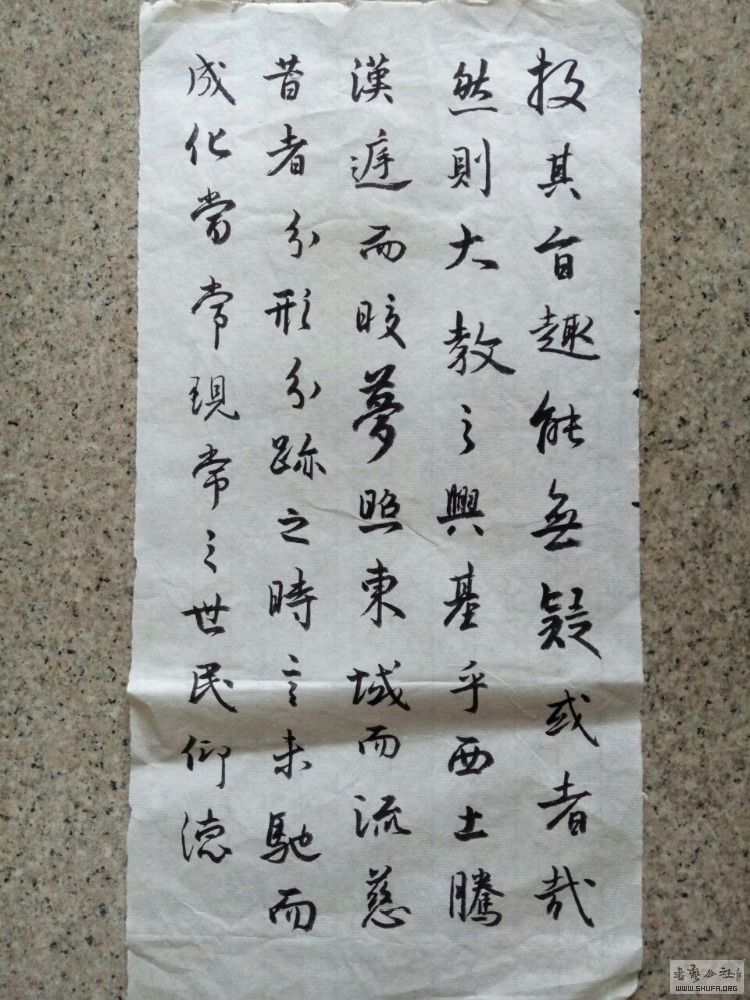 投其旨趣能無疑或者哉
然則大教之興基乎西土騰
漢庭而皎夢照東域而流慈
昔者分形分跡之時言未馳而
成化當常現常之世民仰德
书艺公社
WWW.SHUFA.ORG